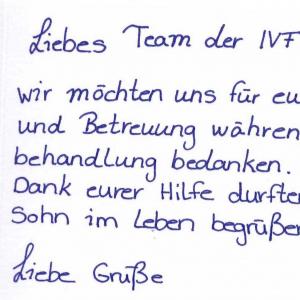 Liebes Team der IVF
wir möchten uns für eu
und Betreuung währen
behandlung bedanken.
Dank eurer Hilfe durfte
Sohn im Leben begrüße
Liebe Grüße